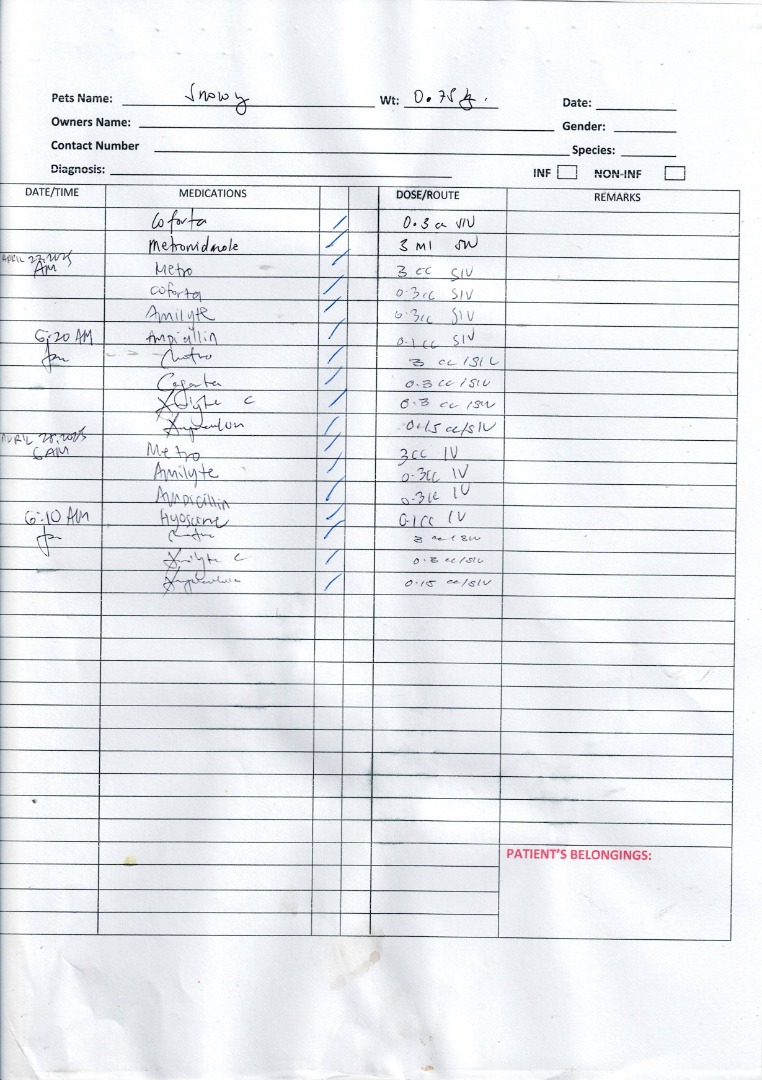 Pets Name: Snowy Wt: 0.75 kg. Date:
Owners Name: Gender:
Contact Number Species:
Diagnosis: INF NON-INF
DATE/TIME MEDICATIONS DOSE/ROUTE REMARKS
Coforta 0.3 cc SIV
Metronidazole 3 Ml SIV
APRIL 27, 2025
AM Metro 3 cc SIV
Coforta 0.3cc SIV
Amilyte 0.3cc SIV
6:20 AM Ampicillin 0.1cc SIV
Metro 3 cc/SIV
0.3 cc/SIV
C 0.3 cc/SIV
0.15 cc/SIV
APRIL 28, 2025
6AM Metro 3cc IV
Amilyte 0.3cc IV
Ampicillin 0.3cc IV
6:10 AM Hyoscine 0.1cc IV
Metro 3 cc/SIV
Amilyte C 0.3 cc/SIV
0.15 cc/SIV
PATIENT'S BELONGINGS: